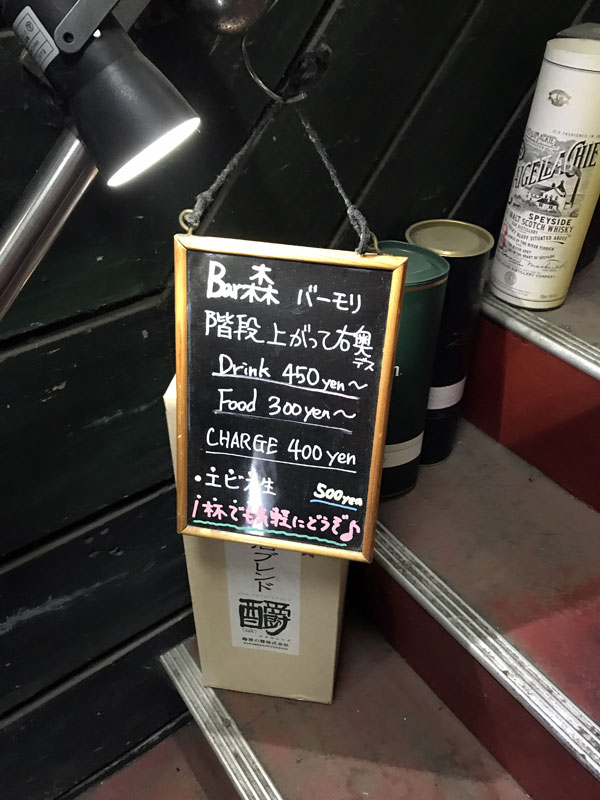 Bar森 バーモリ
階段上がって右奥
デス
Drink 450yen~
Food 300yen~
CHARGE 400yen
・エビス生 500yen
1杯でも気軽にどうぞ♪
ブレンド
SPEYSIDE
MALT SCOTCH WHISKY